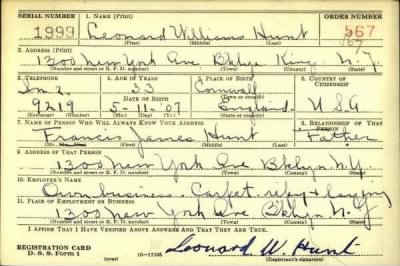 SERIAL NUMBER 1. NAME (Print) ORDER NUMBER
1999 Leonard Williams Hunt 567
(First) (Middle) (Last)
2. ADDRESS (Print)
1300 New York Ave Bklyn King N.Y.
(Number and street or R. F. D. number) (Town) (County) (State)
3. TELEPHONE 4. AGE IN YEARS 5. PLACE OF BIRTH 6. COUNTRY OF CITIZENSHIP
In 2. 33 Cornwall
(Town or county)
DATE OF BIRTH
9219 5-11-07 England U S A
7. NAME OF PERSON WHO WILL ALWAYS KNOW YOUR ADDRESS 8. RELATIONSHIP OF THAT PERSON
Francis James Hunt Father
(First) (Middle) (Last)
9. ADDRESS OF THAT PERSON
1300 New York Ave Bklyn N.Y
(Number and street or R. F. D. number) (Town) (County) (State)
10. EMPLOYER'S NAME
Own business. Carpet
11. PLACE OF EMPLOYMENT OR BUSINESS
1300 New York Ave Bklyn N.Y
(Number and street or R. F. D. number) (Town) (County) (State)
I AFFIRM THAT I HAVE VERIFIED ABOVE ANSWERS AND THAT THEY ARE TRUE.
REGISTRATION CARD
D. S. S. Form 1 (over) Leonard W. Hunt
(Registrant's signature)